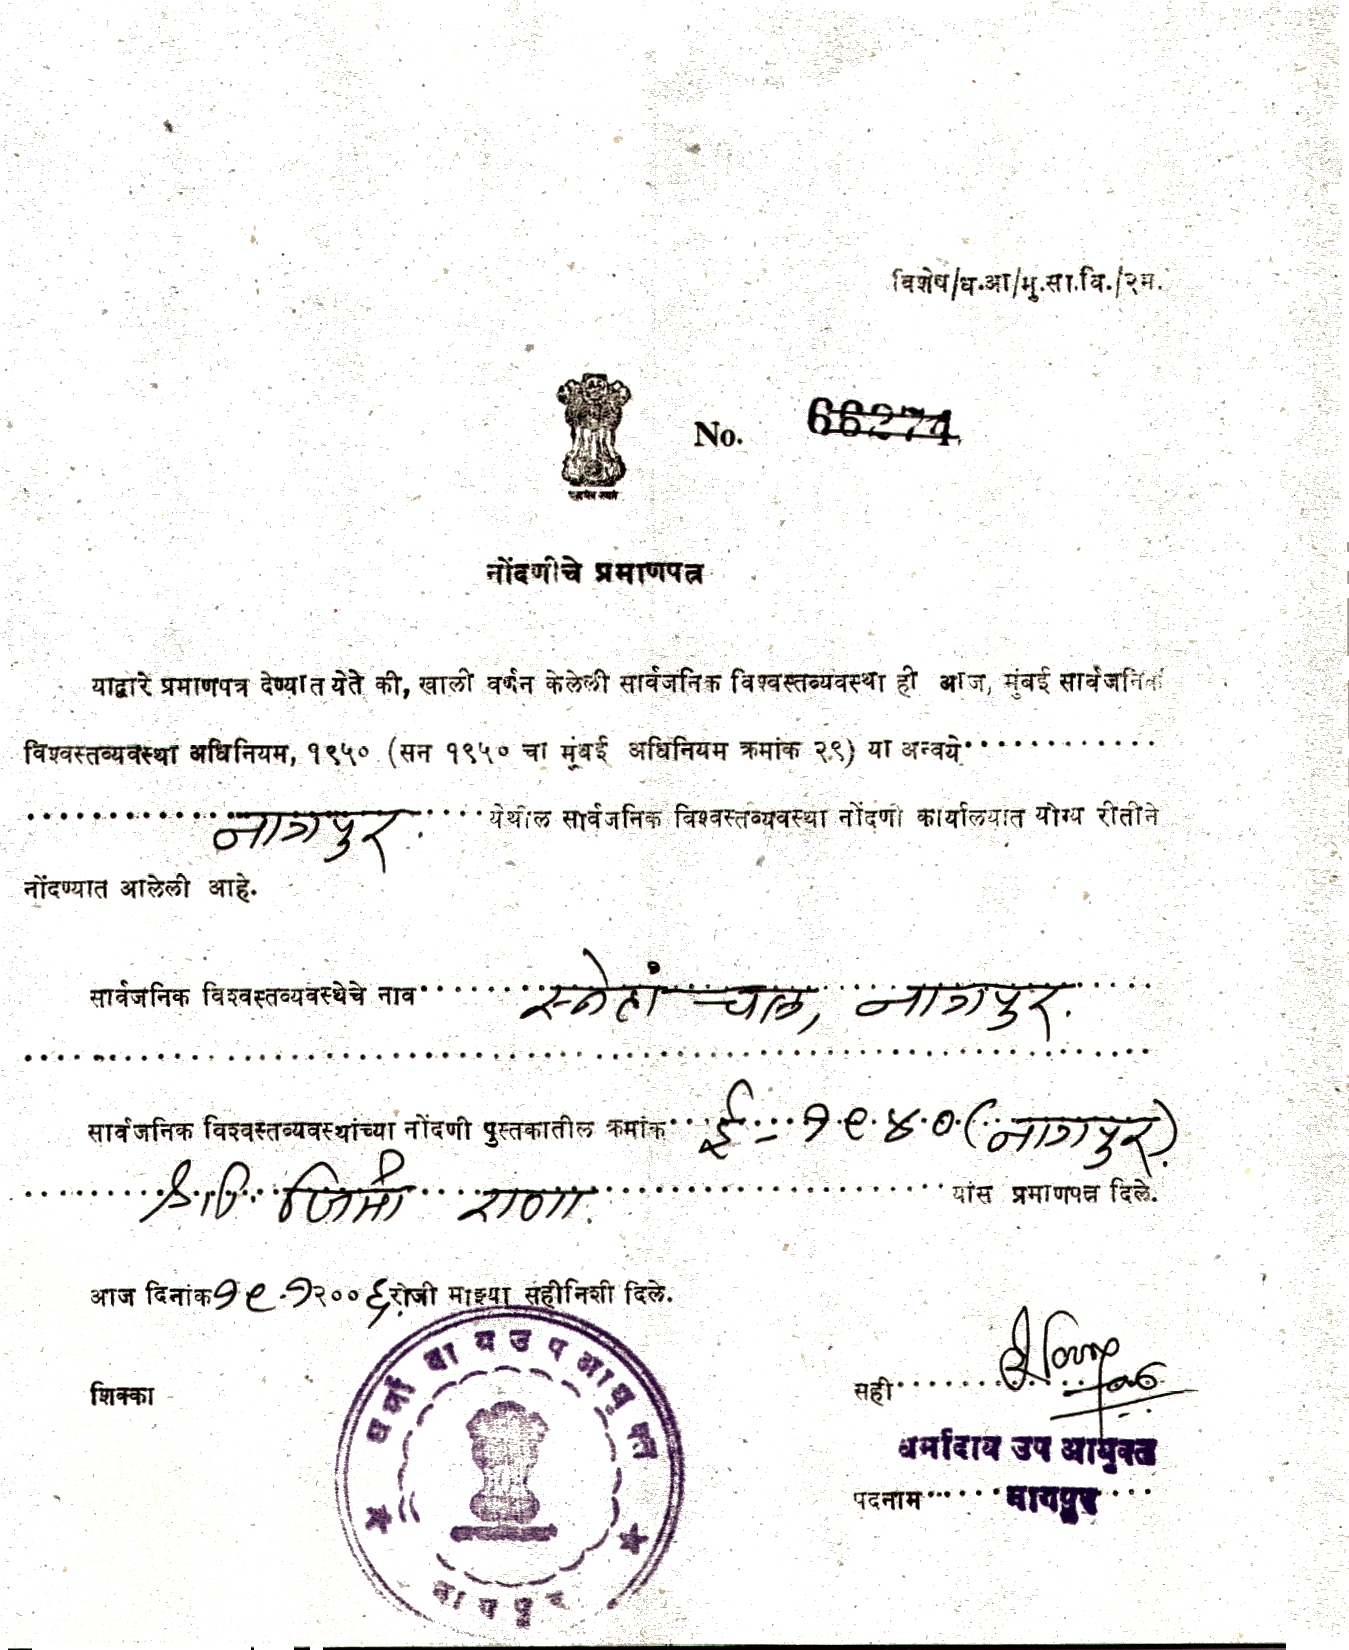 विशेष/ध.आ/मु.सा.वि./२म.
No. 66274
नोंदणीचे प्रमाणपत्र
याद्वारे प्रमाणपत्र देण्यात येते की, खाली वर्णन केलेली सार्वजनिक विश्वस्तव्यवस्था ही आज, मुंबई सार्वजनिक
विश्वस्तव्यवस्था अधिनियम, १९५० (सन १९५० चा मुंबई अधिनियम क्रमांक २९) या अन्वये
नागपुर येथील सार्वजनिक विश्वस्तव्यवस्था नोंदणी कार्यालयात योग्य रीतीने
नोंदण्यात आलेली आहे.
सार्वजनिक विश्वस्तव्यवस्थेचे नाव स्नेहांचल, नागपुर.
सार्वजनिक विश्वस्तव्यवस्थांच्या नोंदणी पुस्तकातील क्रमांक ई-१९४०(नागपुर)
श्री जिमी राणा यांस प्रमाणपत्र दिले.
आज दिनांक १९.१.२००६ रोजी माझ्या सहीनिशी दिले.
शिक्का
धर्मादाय उप आयुक्त
नागपुर
सही
धर्मादाय उप आयुक्त
पदनाम नागपुर